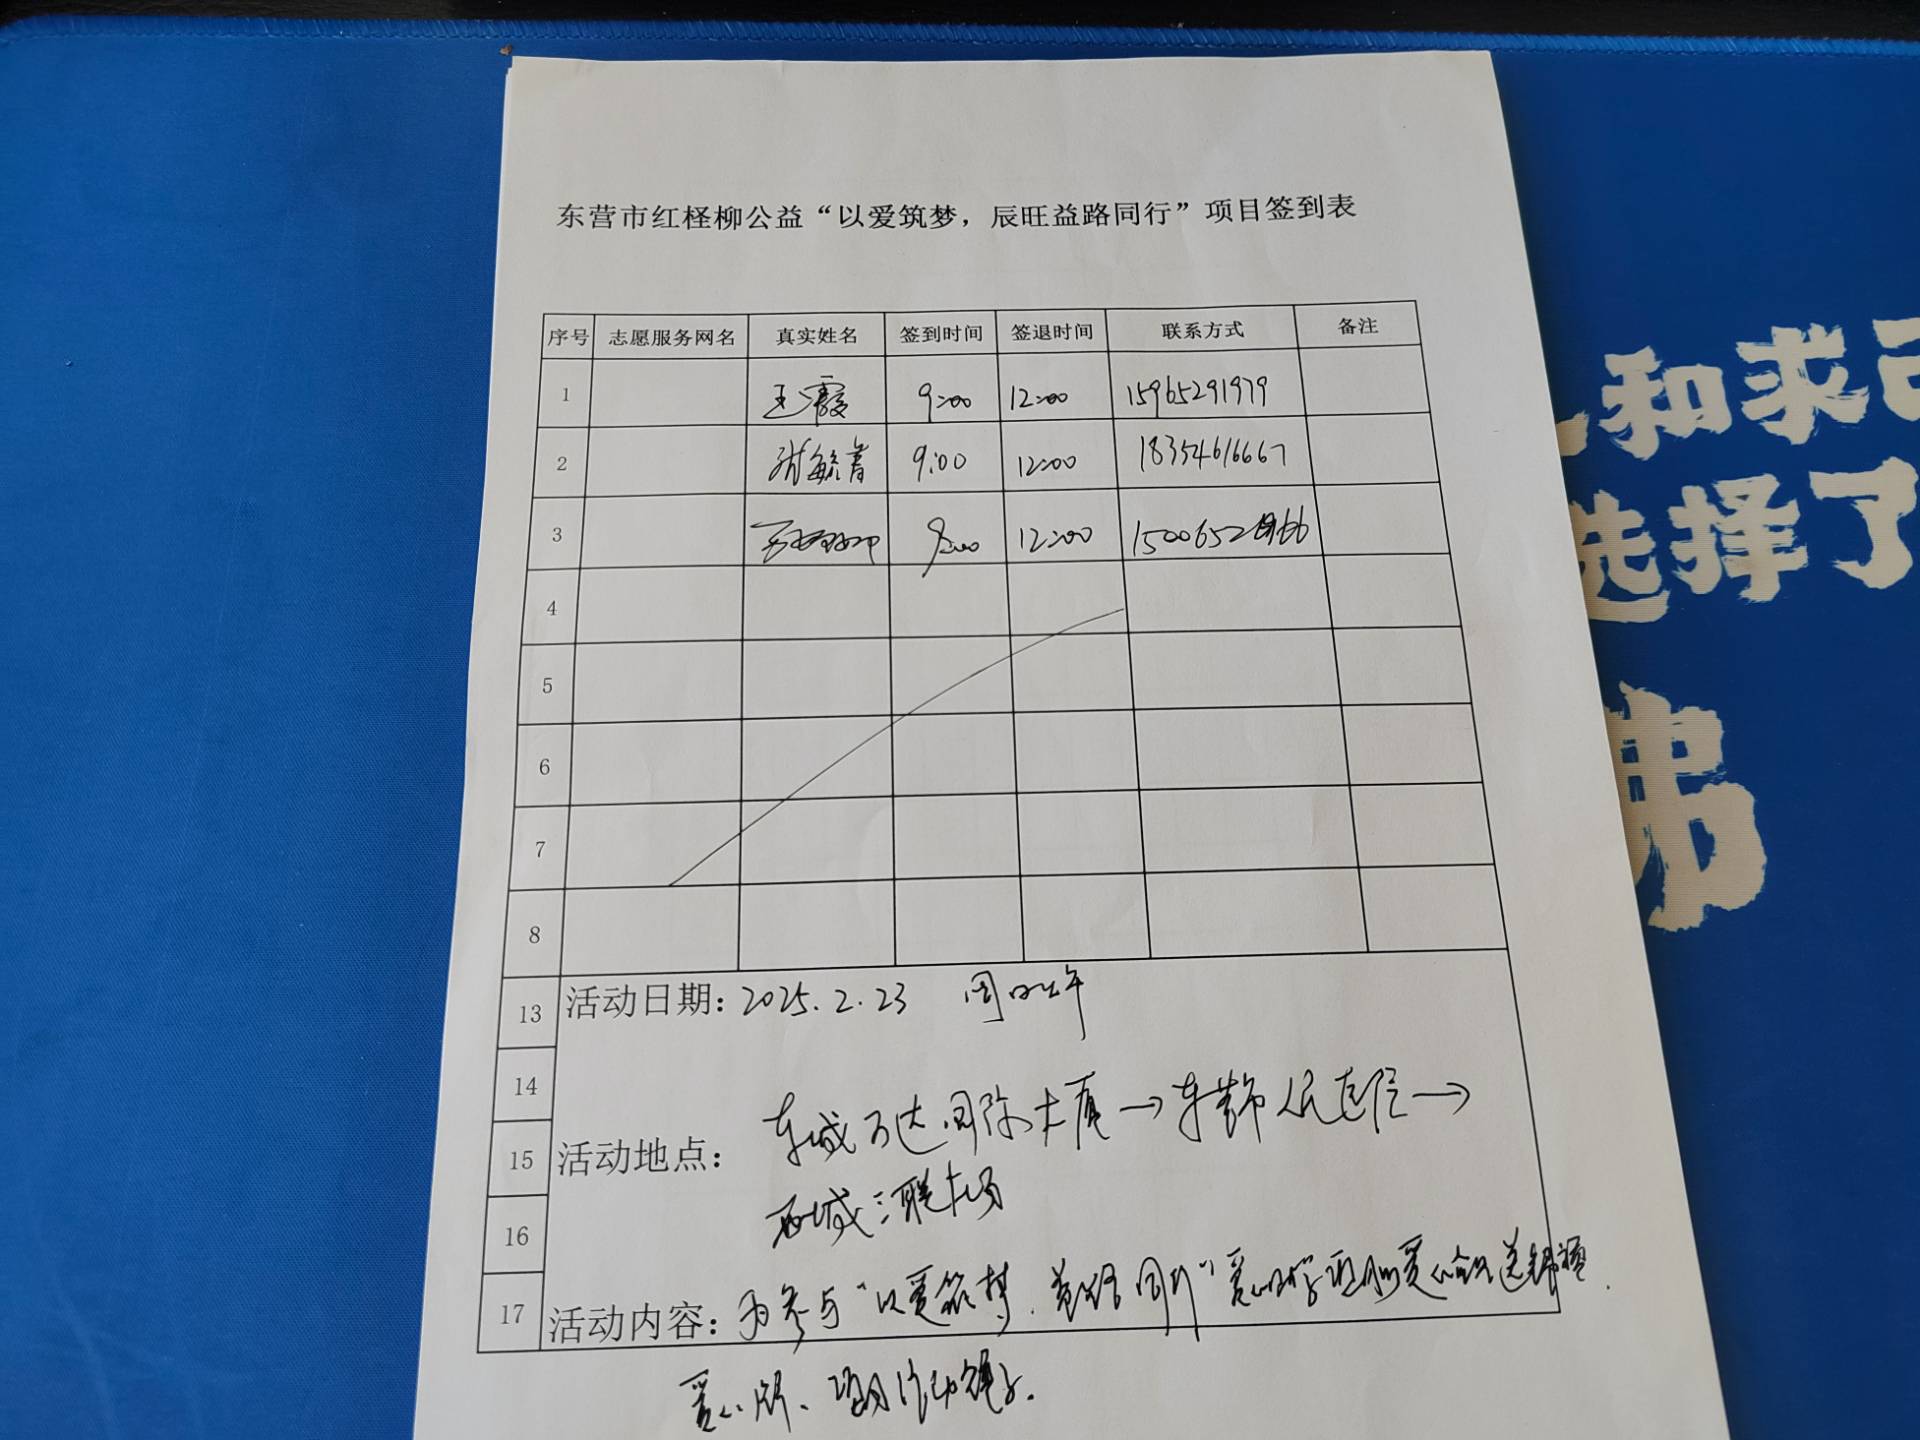 东营市红柽柳公益“以爱筑梦，辰旺益路同行”项目签到表
序号 志愿服务网名 真实姓名 签到时间 签退时间 联系方式 备注
1 王霞 9:00 12:00 15965291979
2 张毓青 9:00 12:00 18354616667
3 9:00 12:00 1500652
4
5
6
7
8
13 活动日期：2025.2.23 周日上午
14
15 活动地点：东城万达国际大厦→东营市人民医院→
西城三联广场
16
17 活动内容：为参与“以爱筑梦，益路同行”爱心助学
爱心
和求
选择了